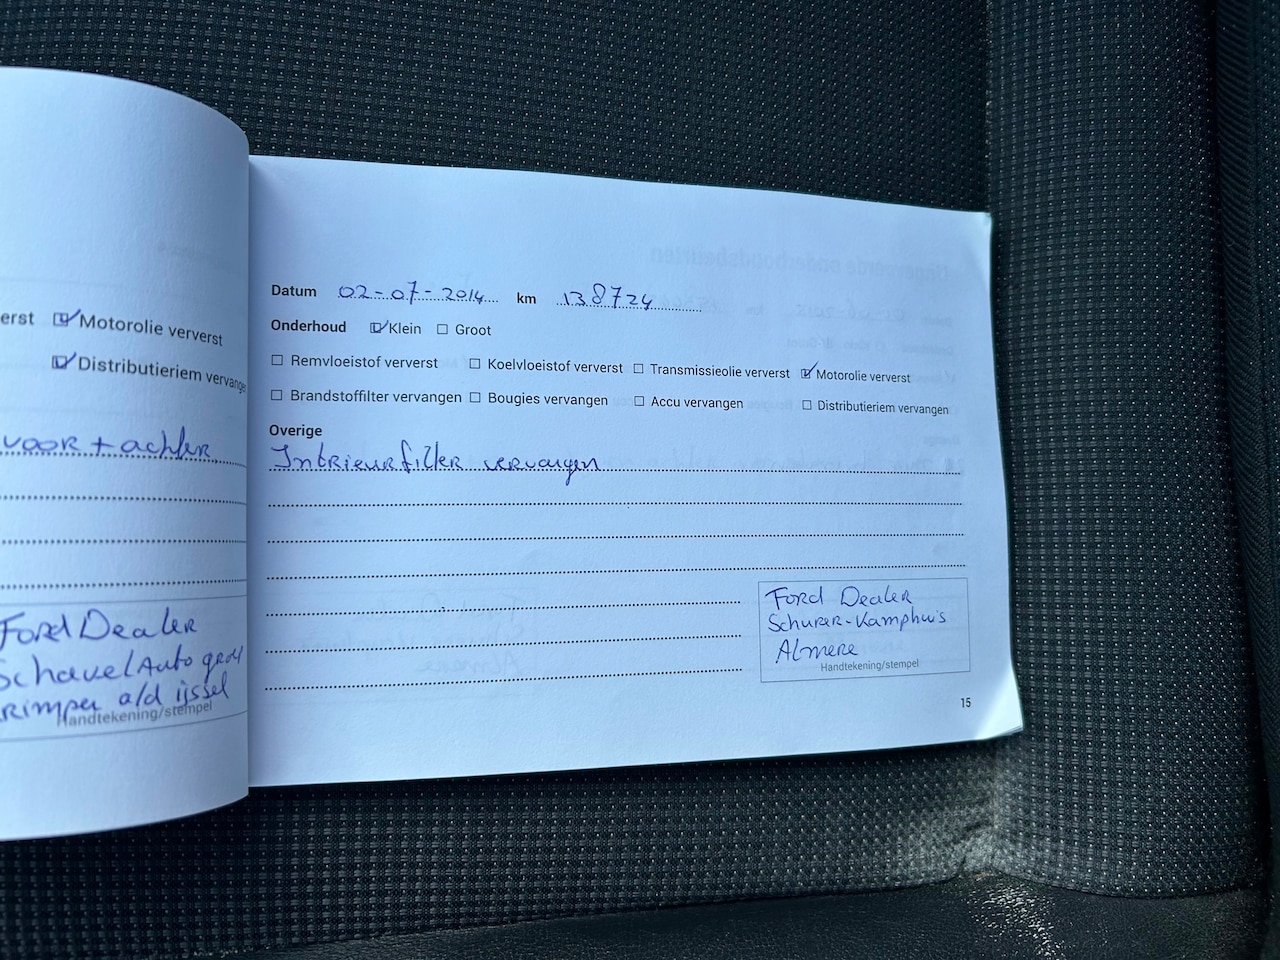 erst ☑ Motorolie ververst
☑ Distributieriem vervangen
voor + achter
Ford Dealer
Schavel Auto groep
krimpen a/d ijssel
Handtekening/stempel
Datum 02-07-2014 km 138724
Onderhoud ☑ Klein ☐ Groot
☐ Remvloeistof ververst ☐ Koelvloeistof ververst ☐ Transmissieolie ververst ☑ Motorolie ververst
☐ Brandstoffilter vervangen ☐ Bougies vervangen ☐ Accu vervangen ☐ Distributieriem vervangen
Overige
Intrieurfilter vervangen
Ford Dealer
Schurer-Kamphuis
Almere
Handtekening/stempel
15